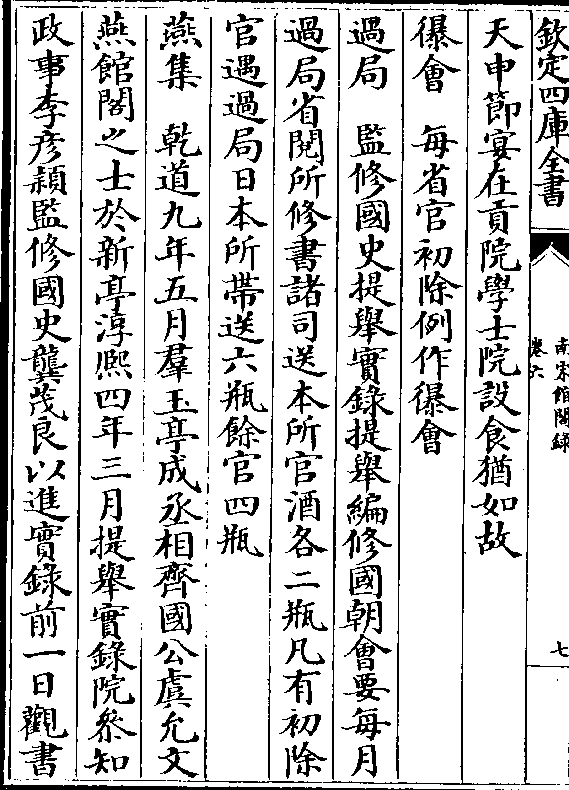 欽定四庫全書
南宋館閣錄
卷六
七
天申節宴在貢院學士院設食猶如故
儤會　每省官初除例作儤會
過局　監修國史提舉實錄提舉編修國朝會要每月
過局省閱所修書諸司送本所官酒各二瓶凡有初除
官遇過局日本所帶送六瓶餘官四瓶
燕集　乾道九年五月羣玉亭成丞相齊國公虞允文
燕館閣之士於新亭淳熙四年三月提舉實錄院叅知
政事李彥穎監修國史龔茂良以進實錄前一日觀書